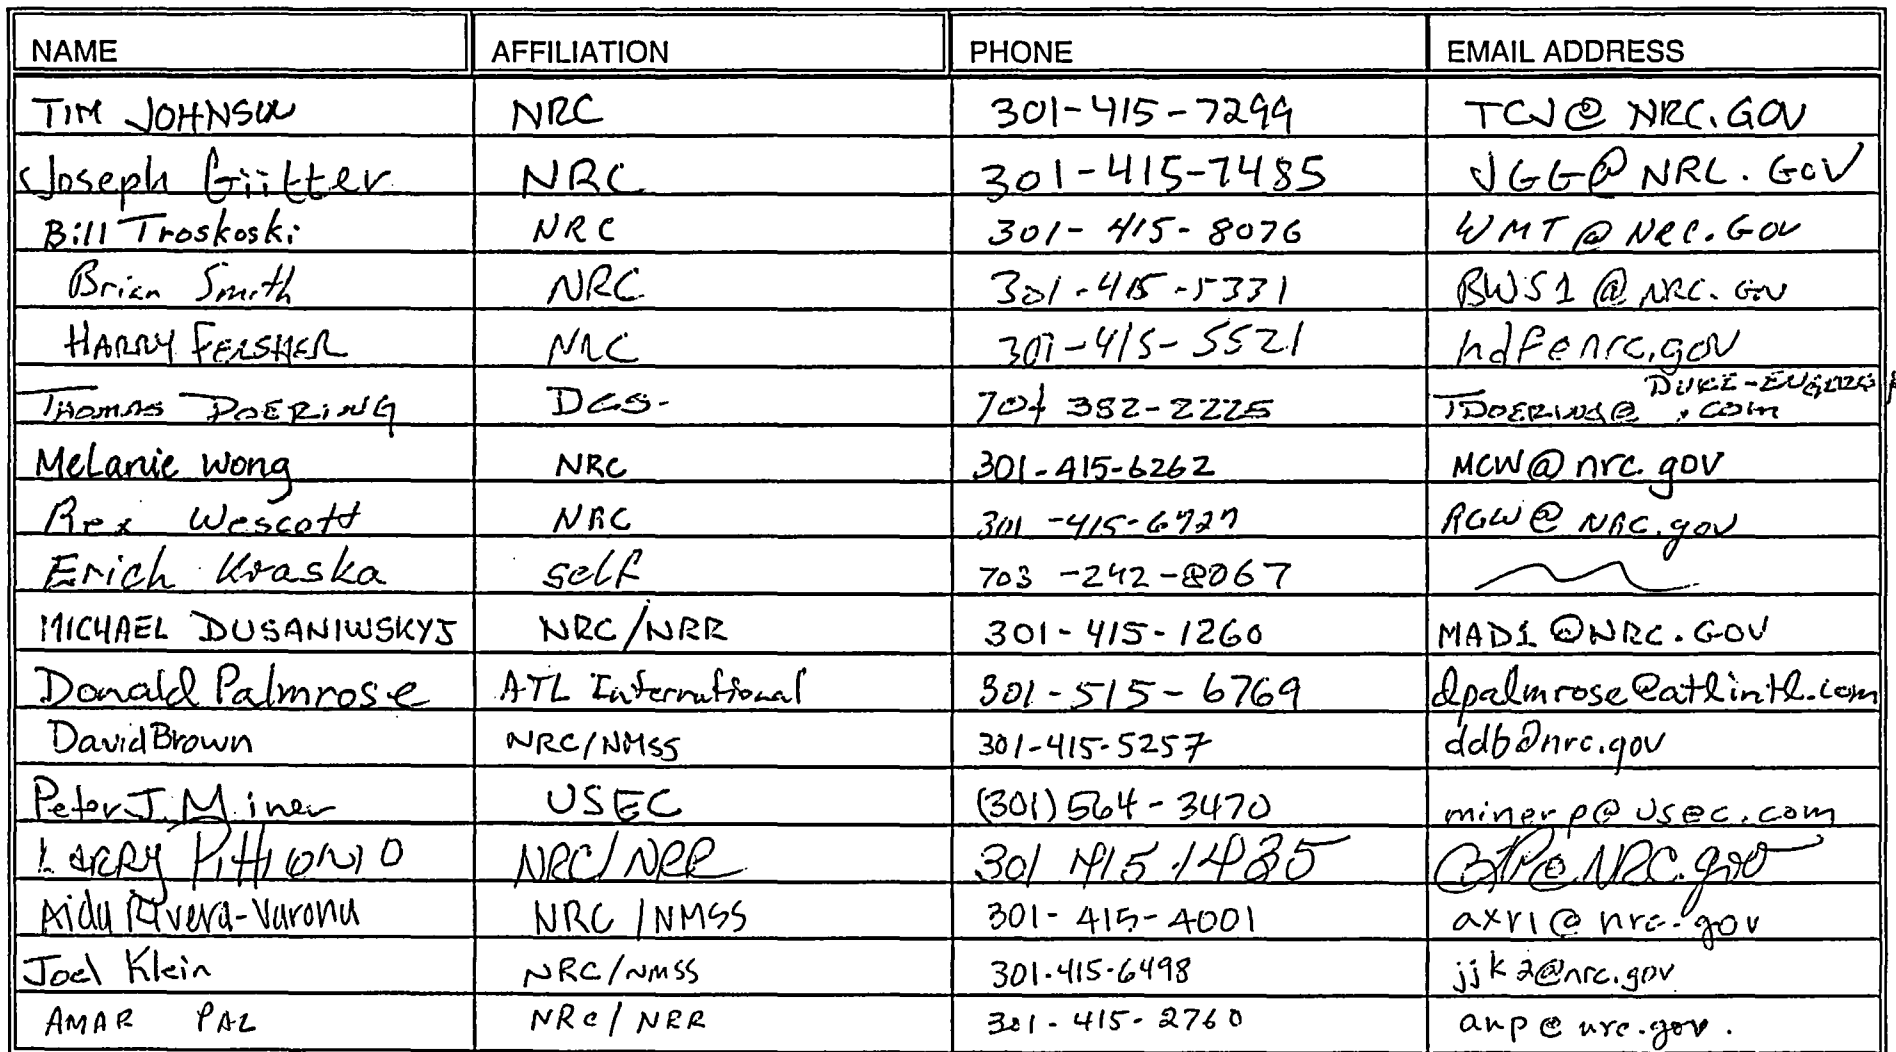 NAME AFFILIATION PHONE EMAIL ADDRESS
TIM JOHNSON NRC 301-415-7299 TCJ@NRC.GOV
Joseph Giitter NRC 301-415-7485 JGG@NRC.GOV
Bill Troskoski NRC 301-415-8076 WMT@NRC.GOV
Brian Smith NRC 301-415-5331 BWS1@NRC.GOV
HARRY FELSHER NRC 301-415-5521 hdf@nrc.gov
THOMAS DOERING DCS 704 382-2225 TDOERING@ .com
MeLanie Wong NRC 301-415-6262 MCW@nrc.gov
Rex Wescott NRC 301-415-6727 RGW@NRC.gov
Erich Kraska self 703-242-8067
MICHAEL DUSANIWSKYJ NRC/NRR 301-415-1260 MAD1@NRC.GOV
Donald Palmrose ATL International 301-515-6769 dpalmrose@atlintl.com
David Brown NRC/NMSS 301-415-5257 ddb@nrc.gov
Peter J. Miner USEC (301) 564-3470 minerp@usec.com
LARRY NRC/NRR 301 415 1435 NRC.gov
Aida Rivera-Varona NRC/NMSS 301-415-4001 axr1@nrc.gov
Joel Klein NRC/NMSS 301-415-6498 jjk2@nrc.gov
AMAR PAL NRC/NRR 301-415-2760 anp@nrc.gov.